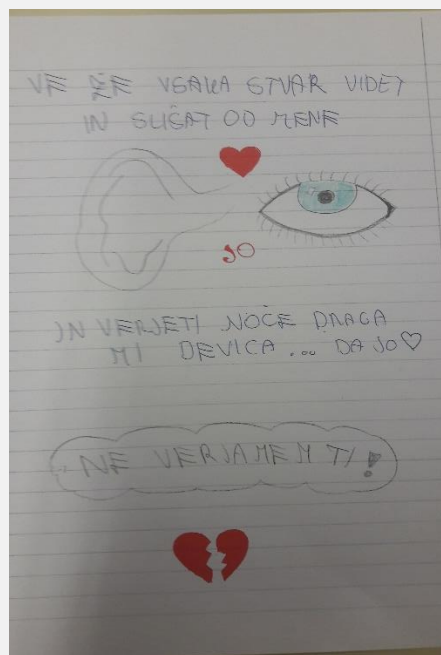 VE ŽE VSAKA STVAR VIDET
IN SLIŠAT OD MENE
JO
IN VERJETI NOČE DRAGA
MI DEVICA ... DA JO ♡
NE VERJAMEM TI!